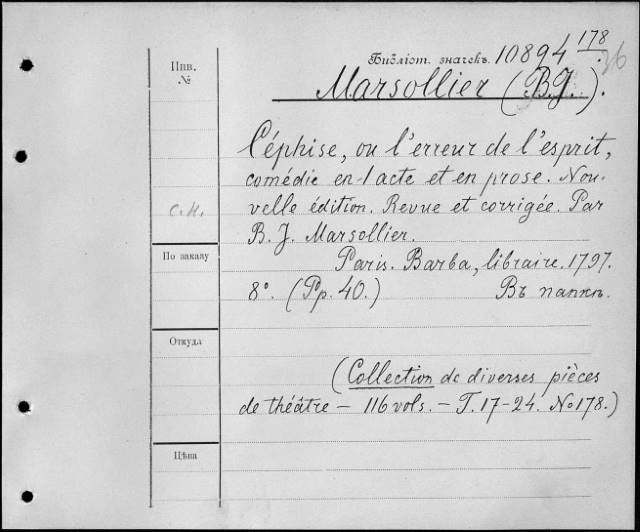 Инв.
№
Библіот. значекъ. 10894 178
36
Marsollier (B.J.).
Céphise, ou l'erreur de l'esprit,
comédie en 1 acte et en prose. Nou-
velle édition. Revue et corrigée. Par
С.Н.
B. J. Marsollier.
По заказу
Paris. Barba, libraire. 1797.
8°. (Pp. 40.) Въ папкѣ.
Откуда
(Collection de diverses pièces
de théâtre — 116 vols. — T. 17-24. No 178.)
Цѣна